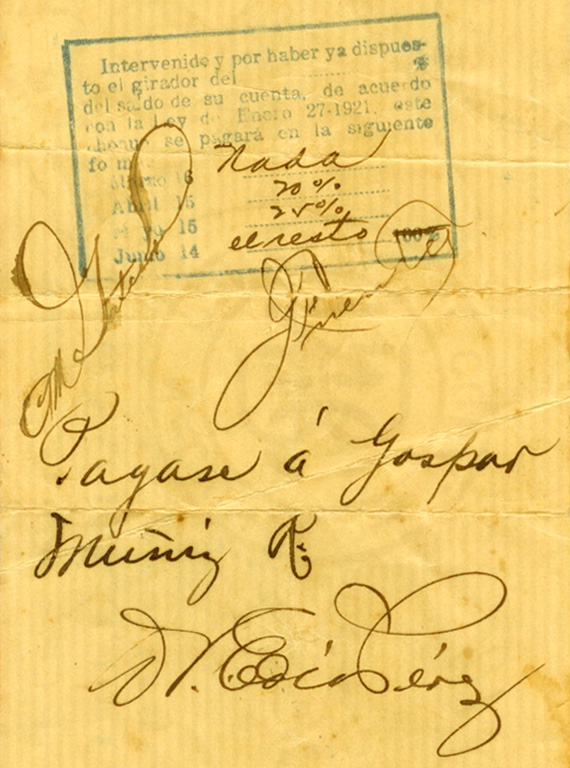 Intervenido y por haber ya dispues-
to el girador del %
del saldo de su cuenta, de acuerdo
con la Ley de Enero 27-1921, este
cheque se pagará en la siguiente
forma:
Marzo 16 Nada
Abril 15 20%
Mayo 15 25%
Junio 14 el resto 100%
Pagase á Gaspar
Muñiz R.